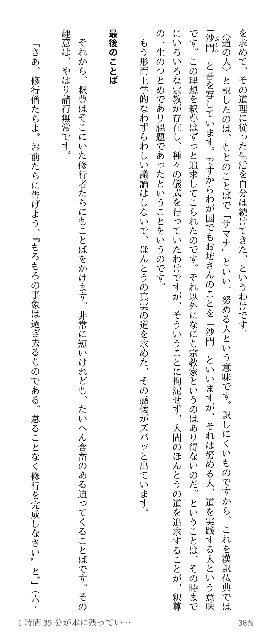 を求めて、その道理に従った生活を自分は続けてきた、というわけです。
〈道の人〉と訳したのは、もとのことばで「サマナ」といい、努める人という意味です。訳しにくいものですから、これを漢訳仏典では
「沙門」と音を写しています。ですからわが国でもお坊さんのことを「沙門」といいますが、それは努める人、道を実践する人という意味
です。この理想を釈尊はずっと追求してこられたのです。それ以外になにも宗教家というのはあり得ないのだ、ということは、その時まで
にいろいろな宗教が存在し、種々の儀式を行っていたわけですが、そういうことに拘泥せず、人間のほんとうの道を追求することが、釈尊
の一生のつとめであり課題であったということをいうのです。
もう形而上学的なわずらわしい議論はしないで、ほんとうの真実の道を求めた、その感慨がズバッと出ています。
最後のことば
それから、釈尊はそこにいた修行者たちにことばをかけます。非常に短いけれども、たいへん含蓄のある迫ってくることばです。その
趣意は、やはり諸行無常です。
「さあ、修行僧たちよ。お前たちに告げよう、『もろもろの事象は過ぎ去るものである。怠ることなく修行を完成しなさい』と。」(六・
1 時間 35 分が本に残ってい…
38%